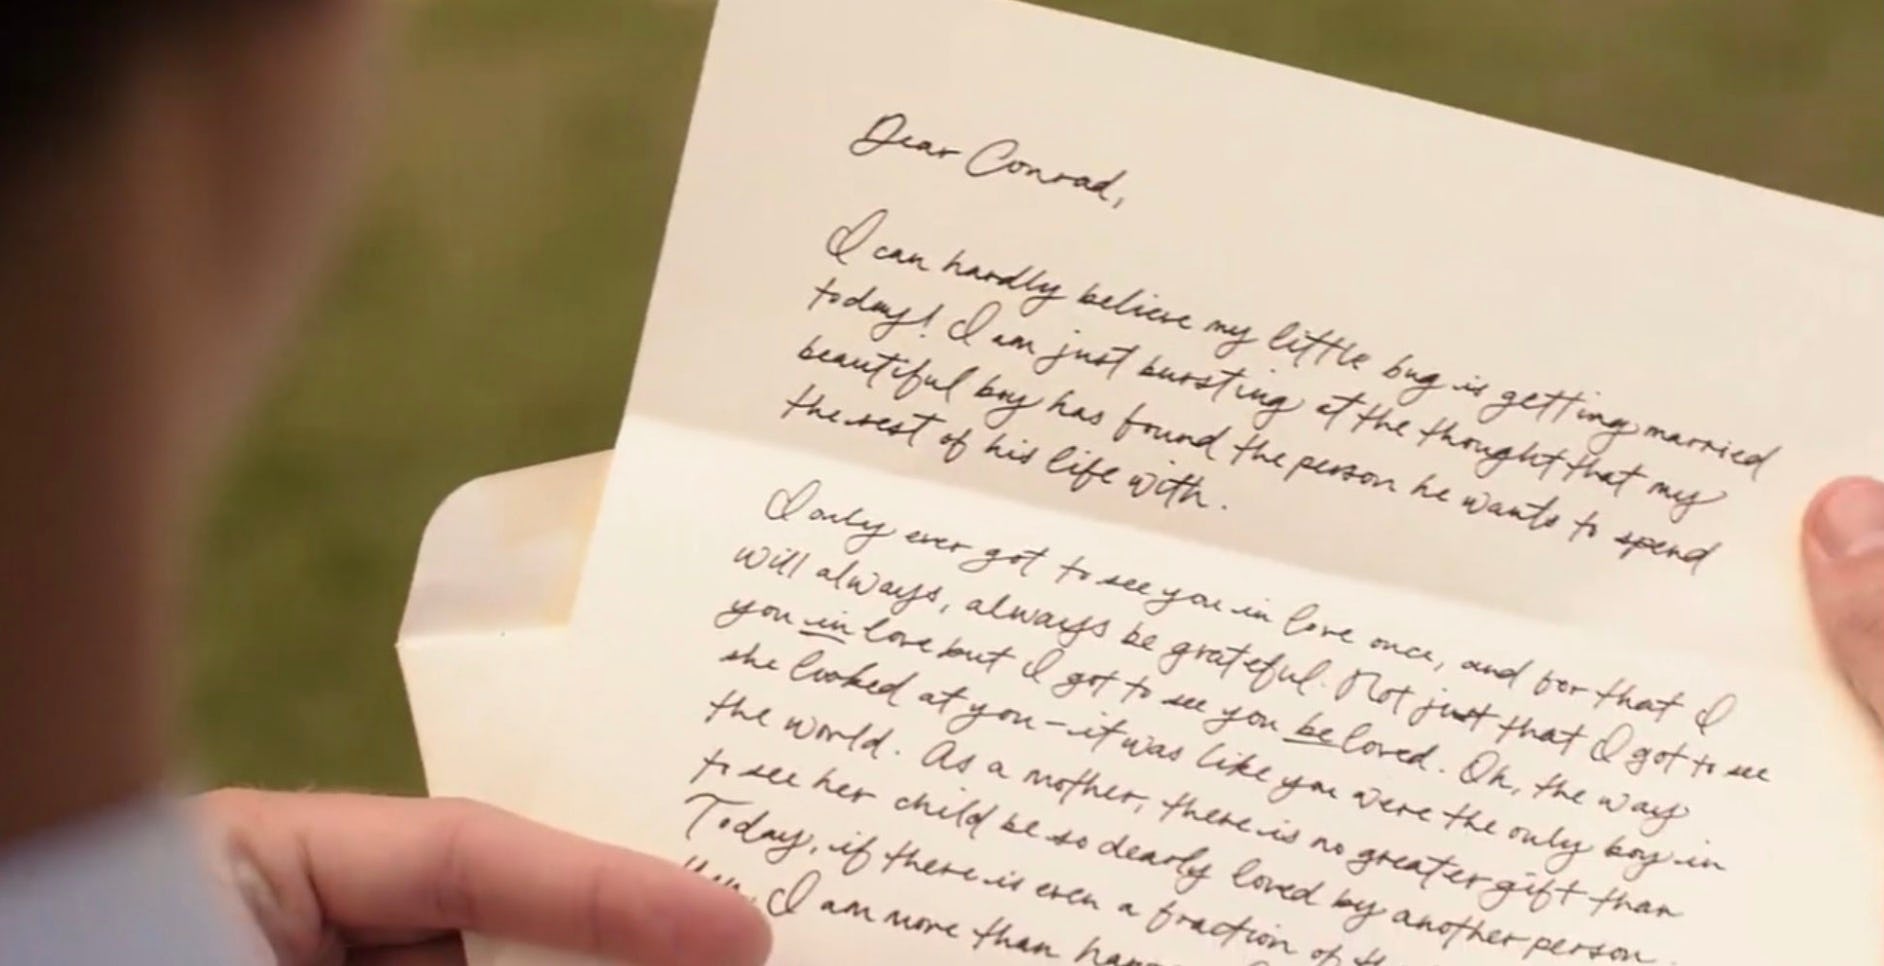 Dear Conrad,
I can hardly believe my little bug is getting married
today! I am just bursting at the thought that my
beautiful boy has found the person he wants to spend
the rest of his life with.
I only ever got to see you in love once, and for that I
will always, always be grateful. Not just that I got to see
you in love but I got to see you be loved. Oh, the way
she looked at you - it was like you were the only boy in
the world. As a mother, there is no greater gift than
to see her child be so dearly loved by another person.
Today, if there is even a fraction of
I am more than